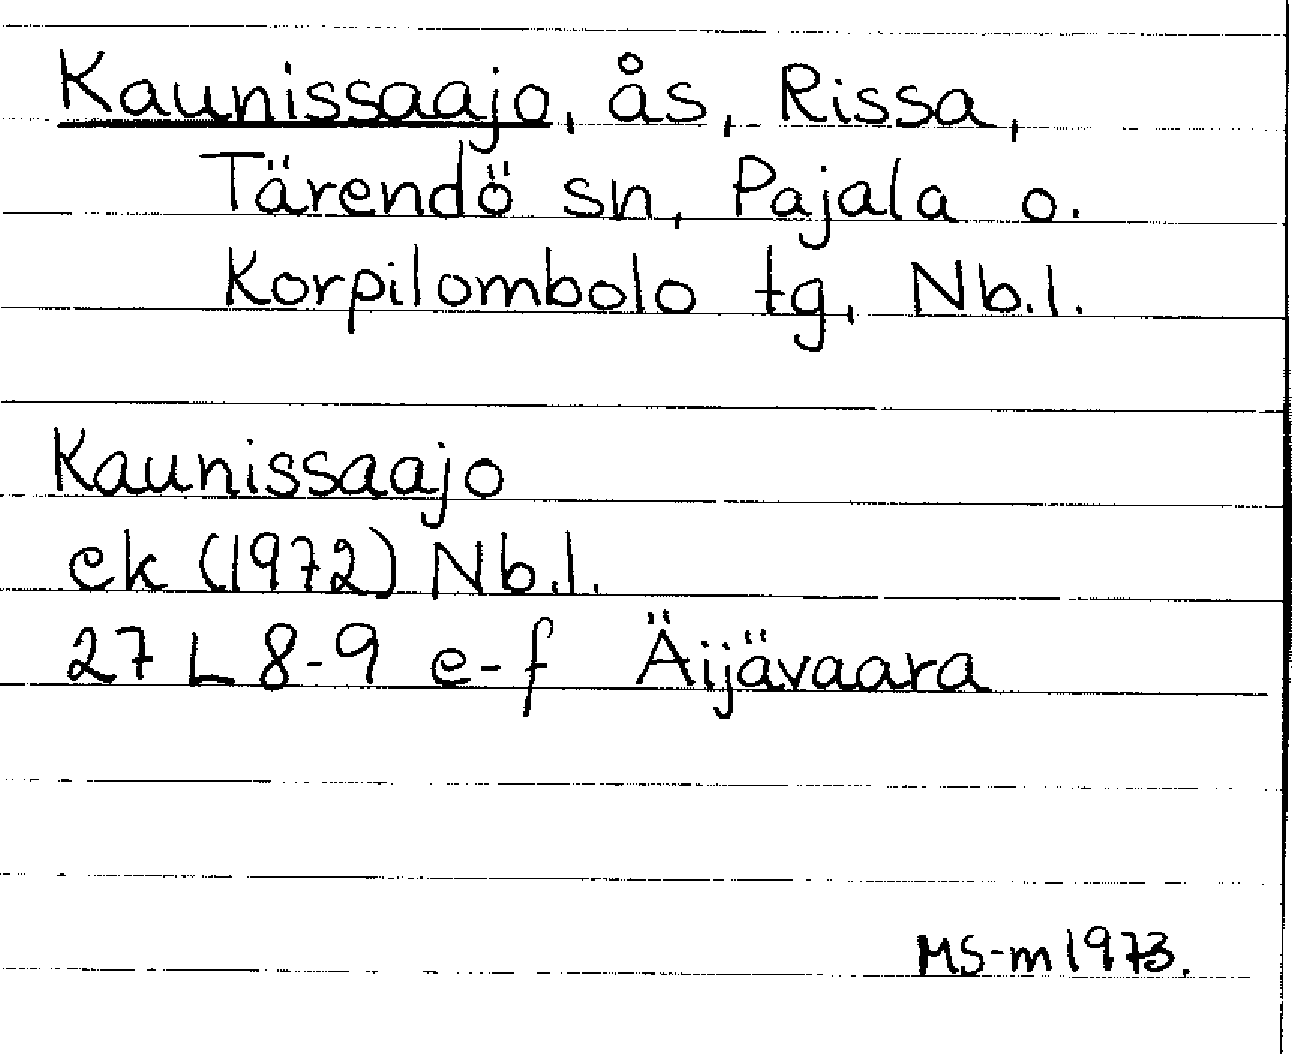 Kaunissaajo, ås, Rissa,
Tärendö sn, Pajala o.
Korpilombolo tg, Nb.l.
Kaunissaajo
ek (1972) Nb.l.
27 L 8-9 e-f Äijävaara
MS-m 1973.